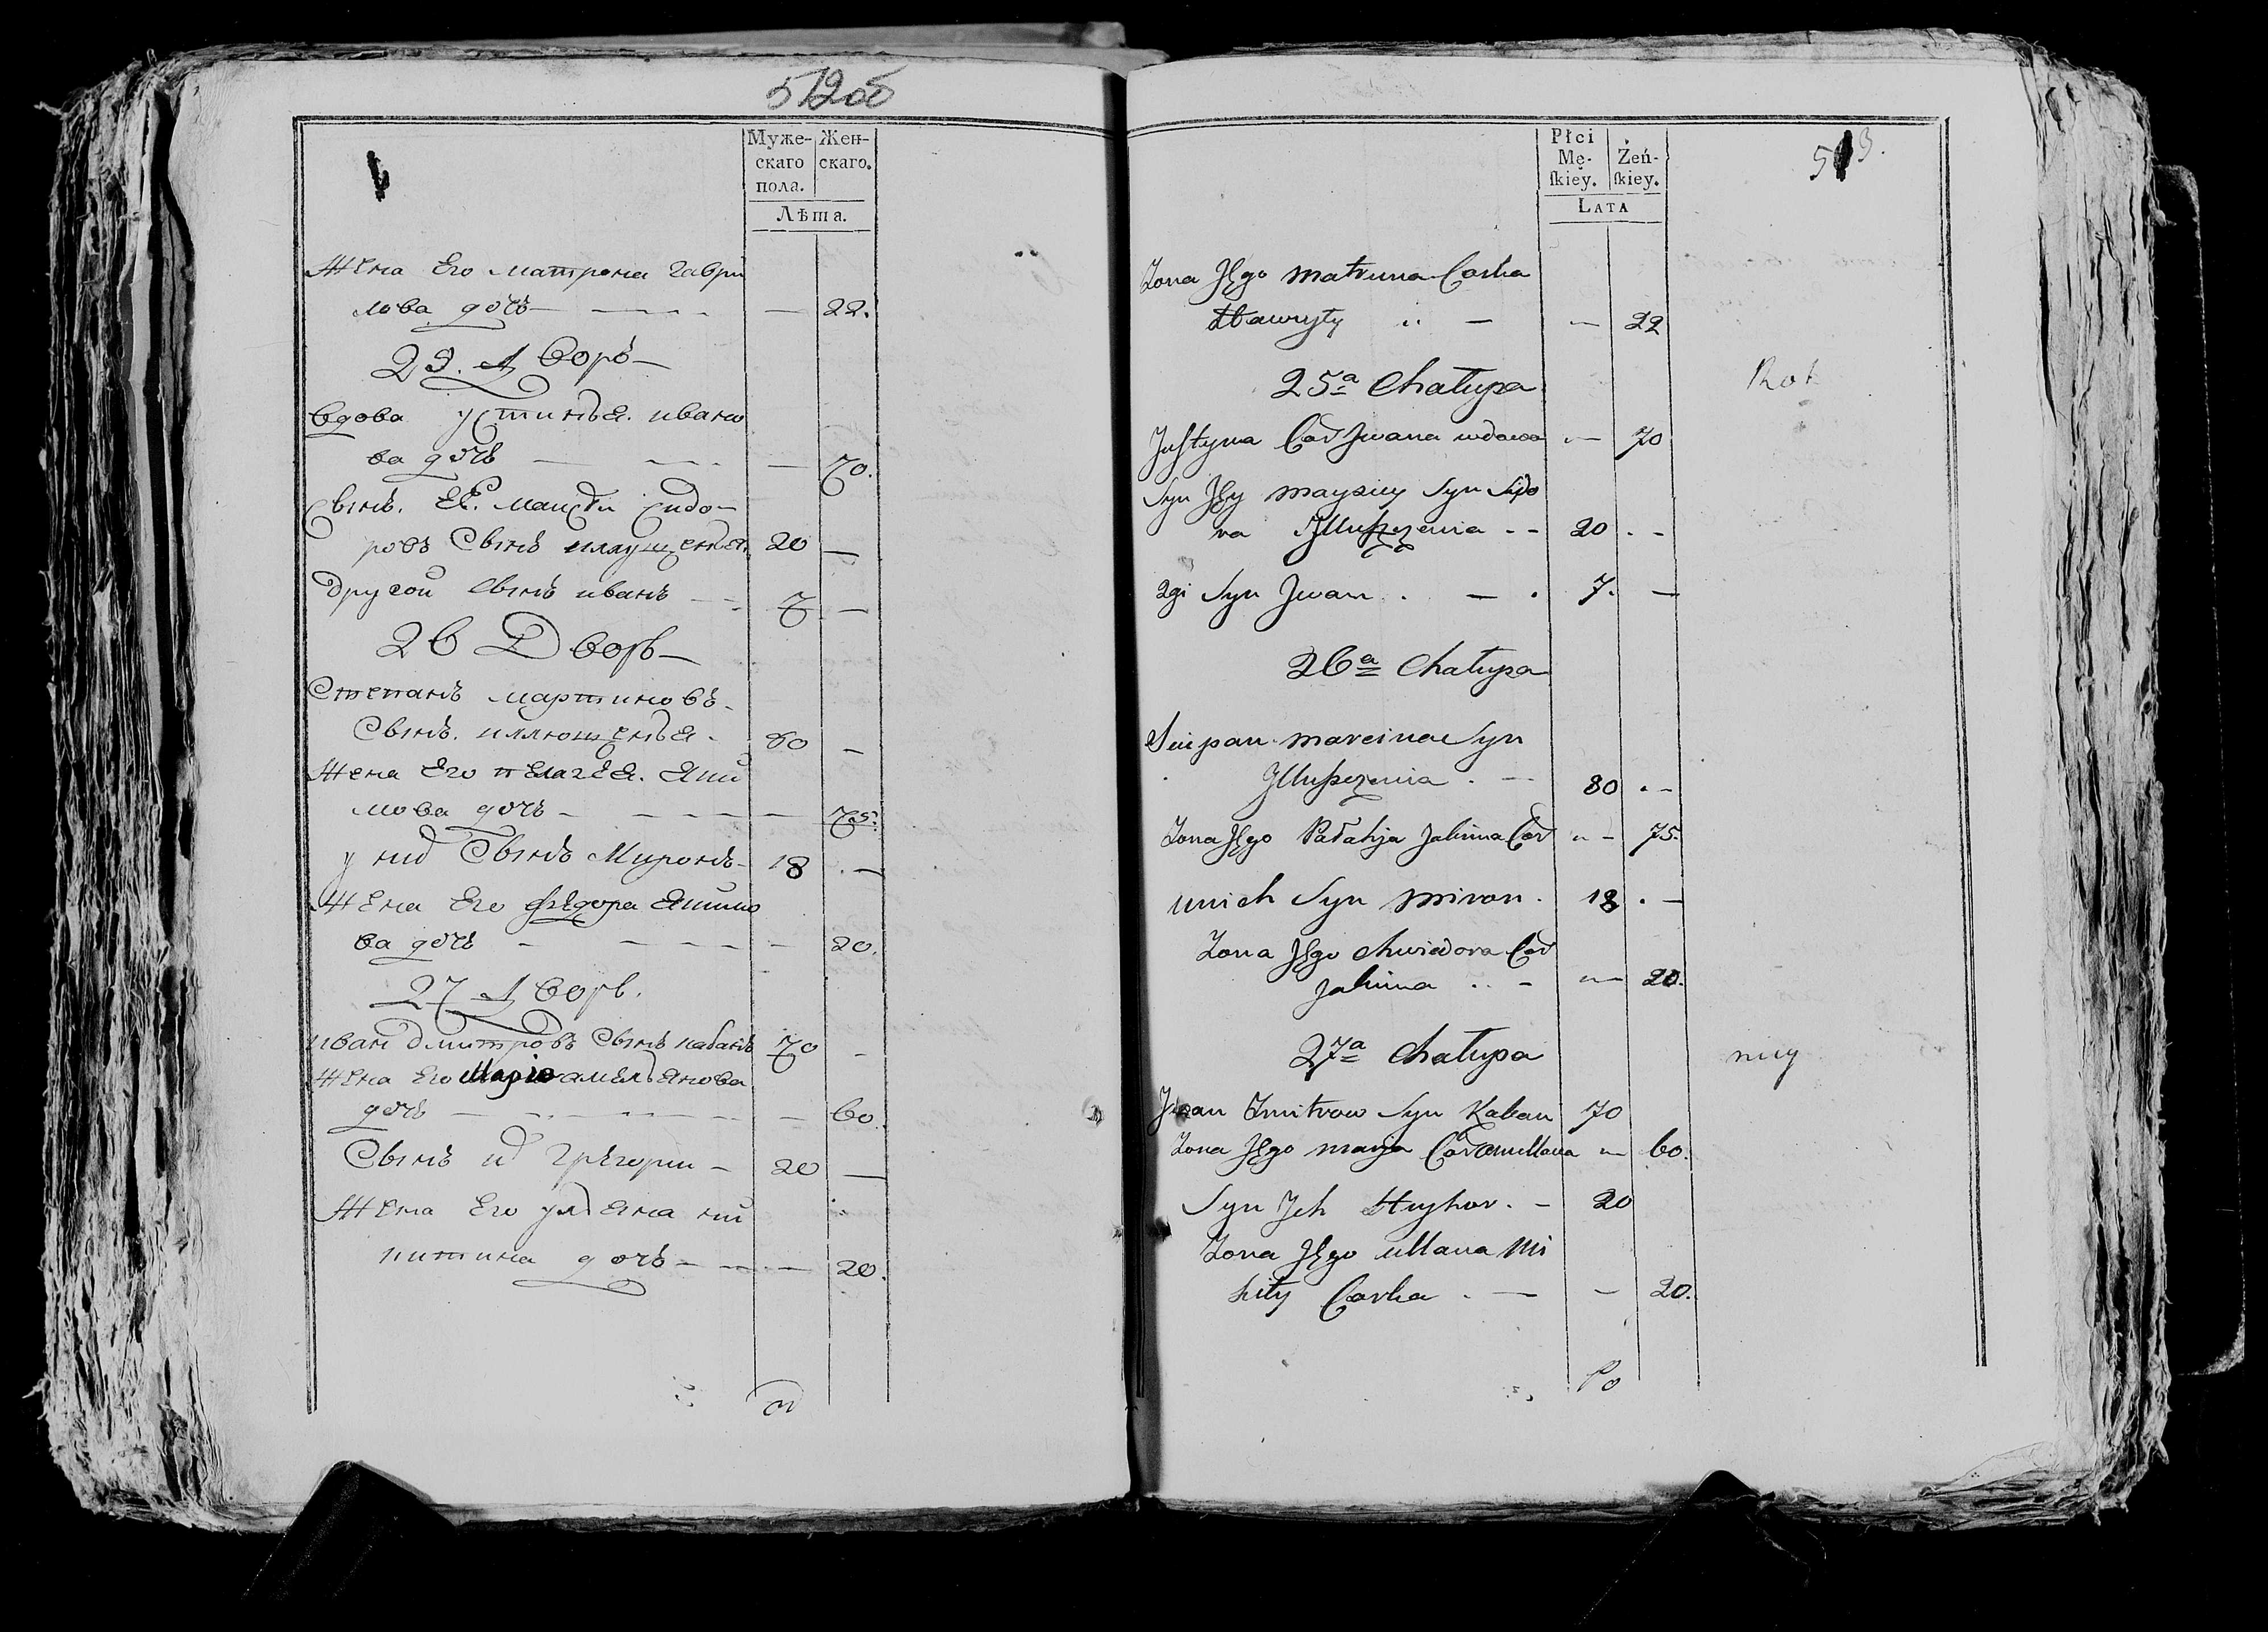 512об
Муже- Жен-
скаго скаго.
пола.
Лѣта.
Жена Его матрона гаври
лова дочь — — 22.
25. Дворъ
вдова устинья. ивано
ва дочь — — 70.
Сынъ Ее. маисѣи сидо-
ровъ Сынъ иллущеня 20 —
другой сынъ иванъ — 7 —
26 Дворъ
Степанъ мартиновъ
Сынъ. иллющенья. 80 —
Жена Его пелагея. Яки
мова дочь — — 75.
у них Сынъ Миронъ 18 . —
Жена Его фѣдора Якимо
ва дочь — — 20.
27 Дворъ.
иван дмитровъ Сынъ кабанъ 70 -
Жена Его Марія амельянова
дочь — — 60.
Сынъ их Грѣгории — 20 —
Жена Его ульяна ни
китина дочь — — 20.
Płci
Mę- Żeń-
skiey. skiey.
LATA
513.
Zona Jego Matruna Corka
Hawryły — — 22
25ª Chałupa
Justyna Cor Jwana wdowa — 70
Syn Jey Maysiey Syn Sido
ra Jlluszczenia - - 20 . -
2gi Syn Jwan . — . 7. —
26ª Chałupa
Sciepan Marcina Syn
Jlluszczenia . — 80 . -
Zona Jego Pałahja Jakima Cor — 75.
unich Syn Miron . 18 . —
Zona Jego Chwiedora Cor
Jakima .. - — 20.
27ª Chałupa
Jwan Zmitrow Syn Kaban 70
Zona Jego Marja Cor Omellana — 60.
Syn Jch Hryhor. — 20
Zona Jego Ullana Mi
kity Corka . — - 20.